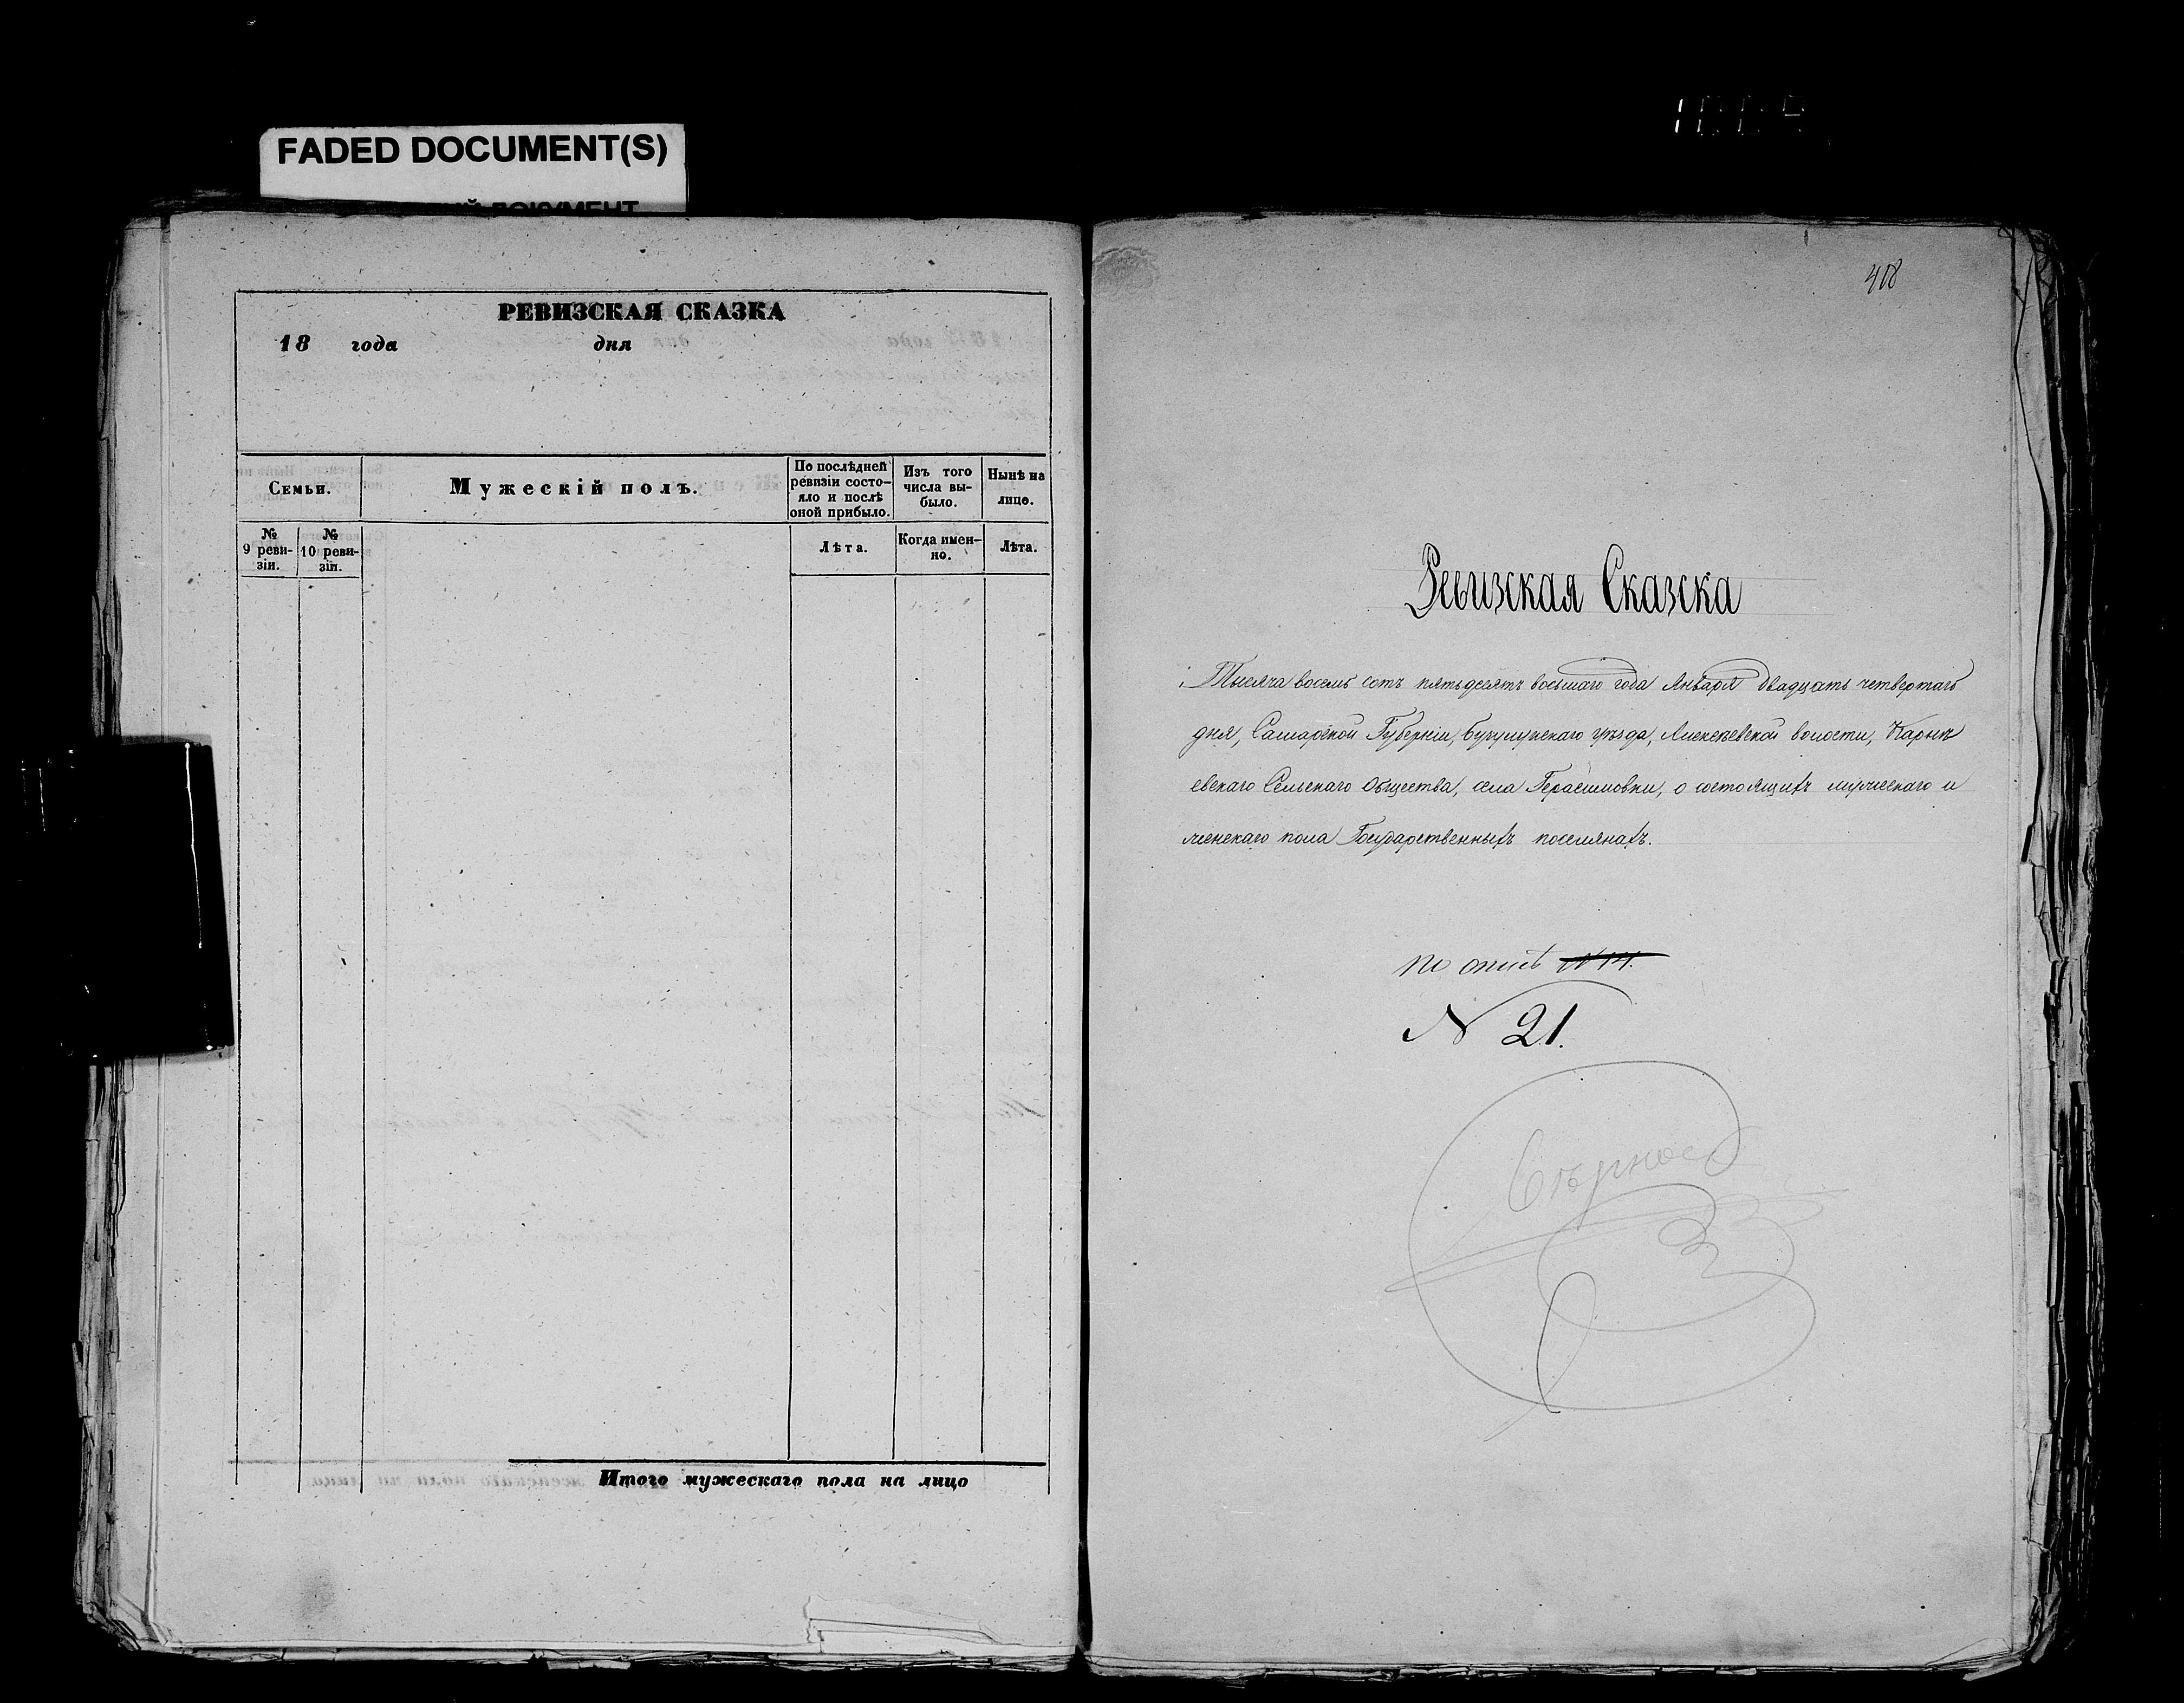 FADED DOCUMENT(S)
РЕВИЗСКАЯ СКАЗКА
18 года дня
Семьи.
Мужескій полъ.
По послѣдней ревизіи состояло и послѣ оной прибыло.
Изъ того числа выбыло.
Нынѣ на лицо.
№ 9 ревизіи.
№ 10 ревизіи.
Лѣта.
Когда именно.
Лѣта.
Итого мужескаго пола на лицо
408
Ревизская Сказка
Тысяча восемь сотъ пятьдесятъ восьмаго года Января двадцать четвертаго
дня, Самарской Губерніи, Бугульминскаго уѣзда, Алексѣевской волости,
евскаго Сельскаго Общества, села Герасимовки, о состоящихъ мужескаго и
женскаго пола Государственныхъ поселянахъ.
по описѣ
N 21.
Вѣрно